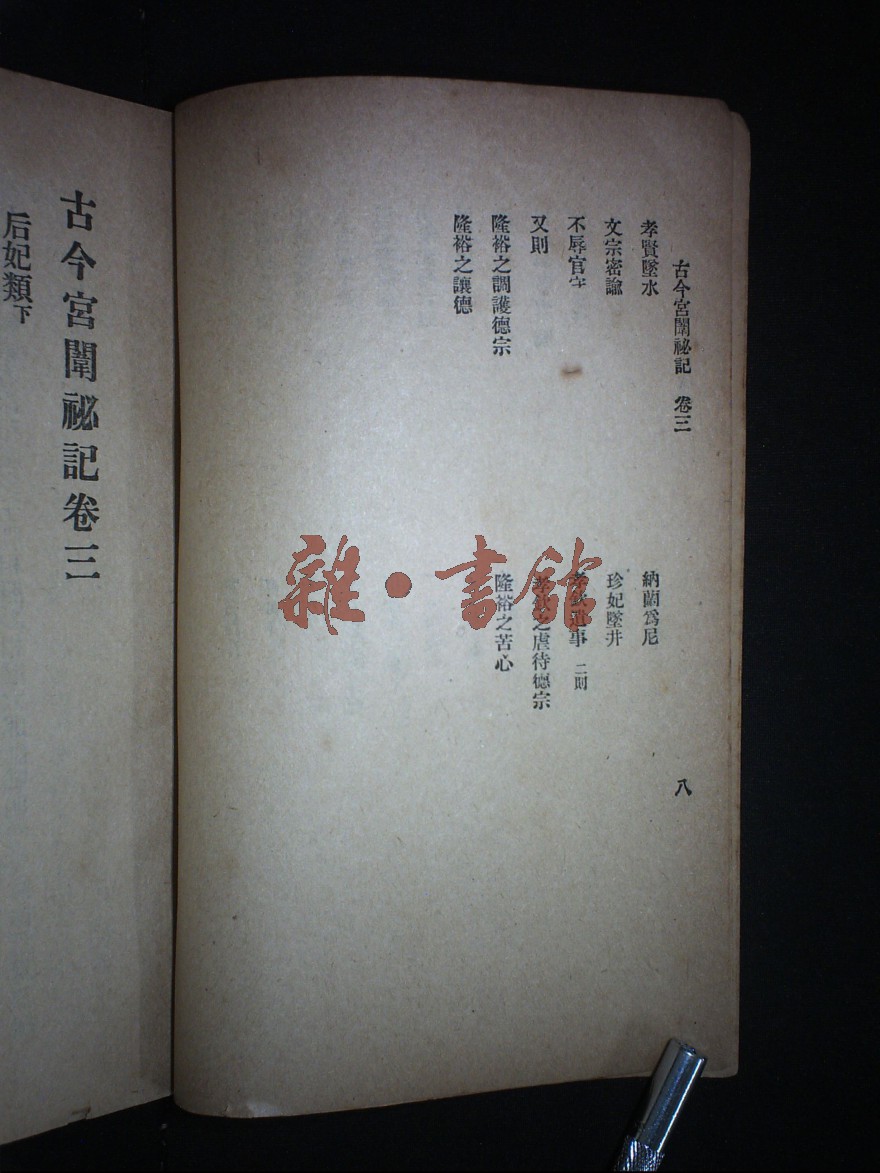 古今宮闈祕記 卷三
八
孝賢墜水
納蘭爲尼
文宗密諭
珍妃墜井
不辱官字
孝欽遺事 二則
又則
孝欽之虐待德宗
隆裕之調護德宗
隆裕之苦心
隆裕之讓德
古今宮闈祕記卷三
后妃類下
雜·書館